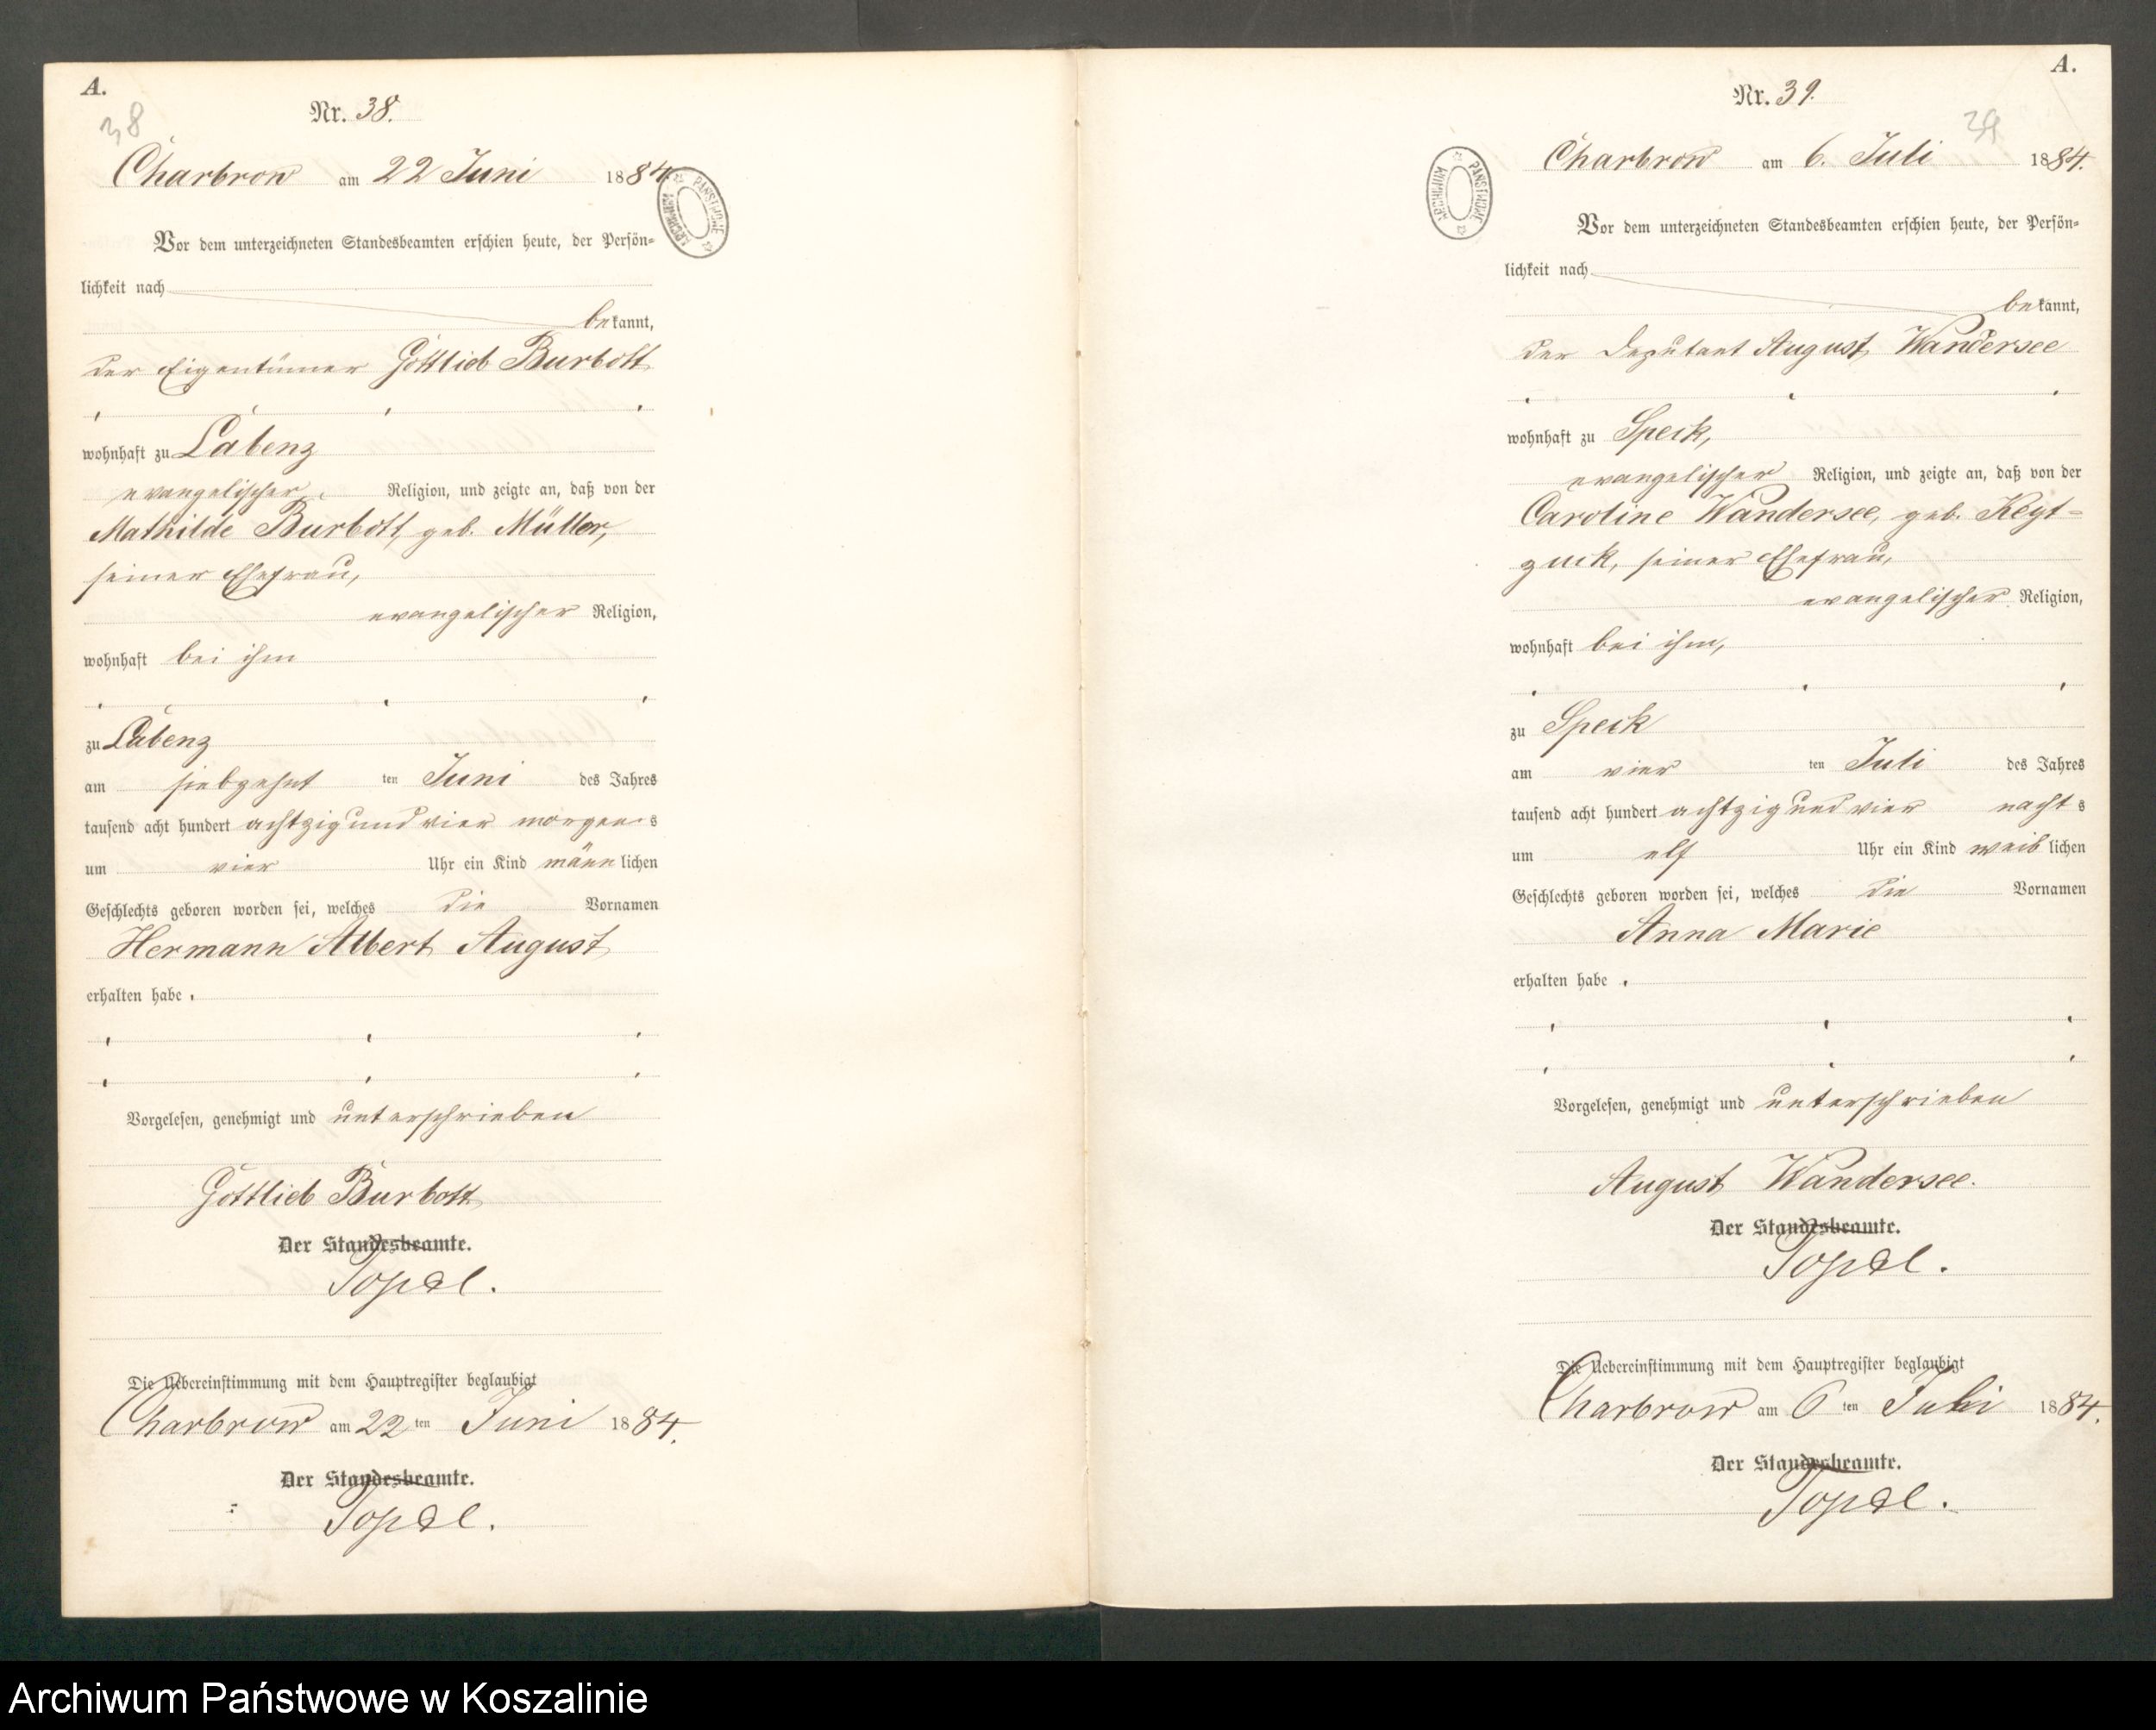 A.
38
Nr. 38.
Charbrow am 22 Juni 1884.
ARCHIWUM PAŃSTWOWE
Vor dem unterzeichneten Standesbeamten erschien heute, der Persön=
lichkeit nach
bekannt,
der Eigentümer Gottlieb Burbott
wohnhaft zu Labenz
evangelischer Religion, und zeigte an, daß von der
Mathilde Burbott, geb. Müller,
seiner Ehefrau,
evangelischer Religion,
wohnhaft bei ihm
zu Labenz
am siebzehnt ten Juni des Jahres
tausend acht hundert achtzig und vier morgens
um vier Uhr ein Kind männlichen
Geschlechts geboren worden sei, welches die Vornamen
Hermann Albert August
erhalten habe.
Vorgelesen, genehmigt und unterschrieben
Gottlieb Burbott
Der Standesbeamte.
Topel.
Die Uebereinstimmung mit dem Hauptregister beglaubigt
Charbrow am 22 ten Juni 1884.
Der Standesbeamte.
Topel.
A.
39
Nr. 39.
Charbrow am 6. Juli 1884.
ARCHIWUM PAŃSTWOWE
Vor dem unterzeichneten Standesbeamten erschien heute, der Persön=
lichkeit nach
bekannt,
der Deputant August Wandersee
wohnhaft zu Speck,
evangelischer Religion, und zeigte an, daß von der
Caroline Wandersee, geb. Keyt=
zuck, seiner Ehefrau,
evangelischer Religion,
wohnhaft bei ihm,
zu Speck
am vier ten Juli des Jahres
tausend acht hundert achtzig und vier nachts
um elf Uhr ein Kind weiblichen
Geschlechts geboren worden sei, welches die Vornamen
Anna Marie
erhalten habe.
Vorgelesen, genehmigt und unterschrieben
August Wandersee.
Der Standesbeamte.
Topel.
Die Uebereinstimmung mit dem Hauptregister beglaubigt
Charbrow am 6 ten Juli 1884.
Der Standesbeamte.
Topel.
Archiwum Państwowe w Koszalinie